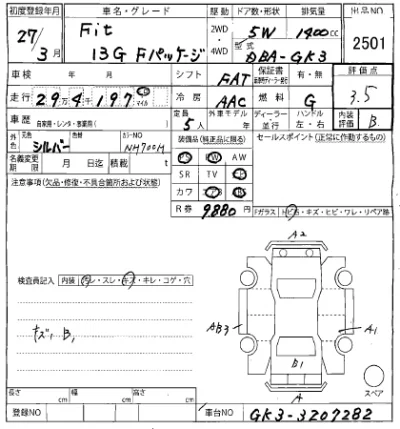 初度登録年月 車名・グレード 駆動 ドア数・形状 排気量 出品NO
27/3月 Fit 13G Fパッケージ 2WD・4WD 5W 1400cc 2501
型式 DBA-GK3
車検 年 月 シフト FAT 保証書 有・無 評価点
走行 29万4千197 km マイル 冷房 AAC 燃料 G 3.5
車歴 自家用・レンタ・事業用( ) 定員 5人 外車モデル 年 ディーラー・並行 ハンドル 左・右 内装評価 B
外色 元色 シルバー 色替 カラーNO NH700M 装備品(純正品に限る) セールスポイント(正常に作動するもの)
PS PW AW
名義変更期限 月 日迄 積載 t SR TV
注意事項(欠品・修復・不具合箇所および状態)
カワ
R券 9880円 Fガラス トビ石・キズ・ヒビ・ワレ・リペア跡
A2
検査員記入 内装 ヨゴレ・スレ・キズ・キレ・コゲ・穴
キズ, B1
AB3 A1
B1
A
スペア
長さ cm 幅 cm 高さ cm
登録NO 車台NO GK3-3207282